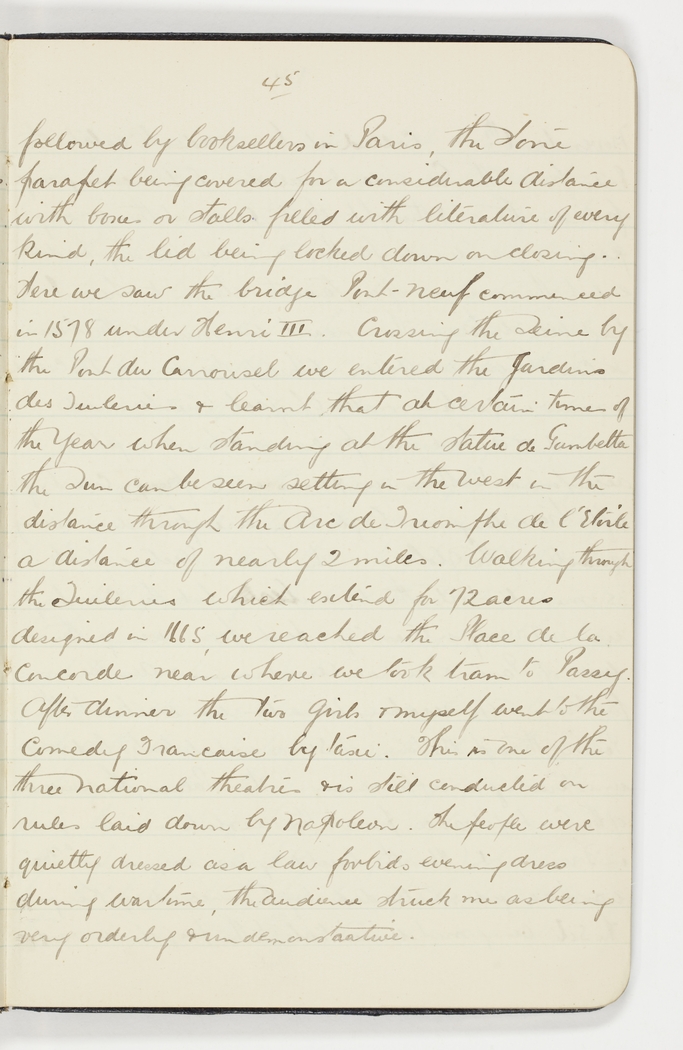 45
followed by booksellers in Paris, the stone
parapet being covered for a considerable distance
with boxes or stalls filled with literature of every
kind, the lid being locked down on closing..
Here we saw the bridge Pont-neuf commenced
in 1578 under Henri III. Crossing the Seine by
the Pont du Carrousel we entered the Jardins
des Tuileries & learnt that at certain times of
the Year when standing at the statue de Gambetta
the Sun can be seen setting in the West in the
distance through the Arc de Triomphe de l'Etoile
a distance of nearly 2 miles. Walking through
the Tuileries which extend for 72 acres
designed in 1665, we reached the Place de la
Concorde near where we took tram to Passy.
After dinner the two girls & myself went to the
Comedy Francaise by taxi. This is one of the
three national theatres & is still conducted on
rules laid down by Napoleon. The people were
quietly dressed as a law forbids evening dress
during wartime, the audience struck me as being
very orderly & undemonstrative.